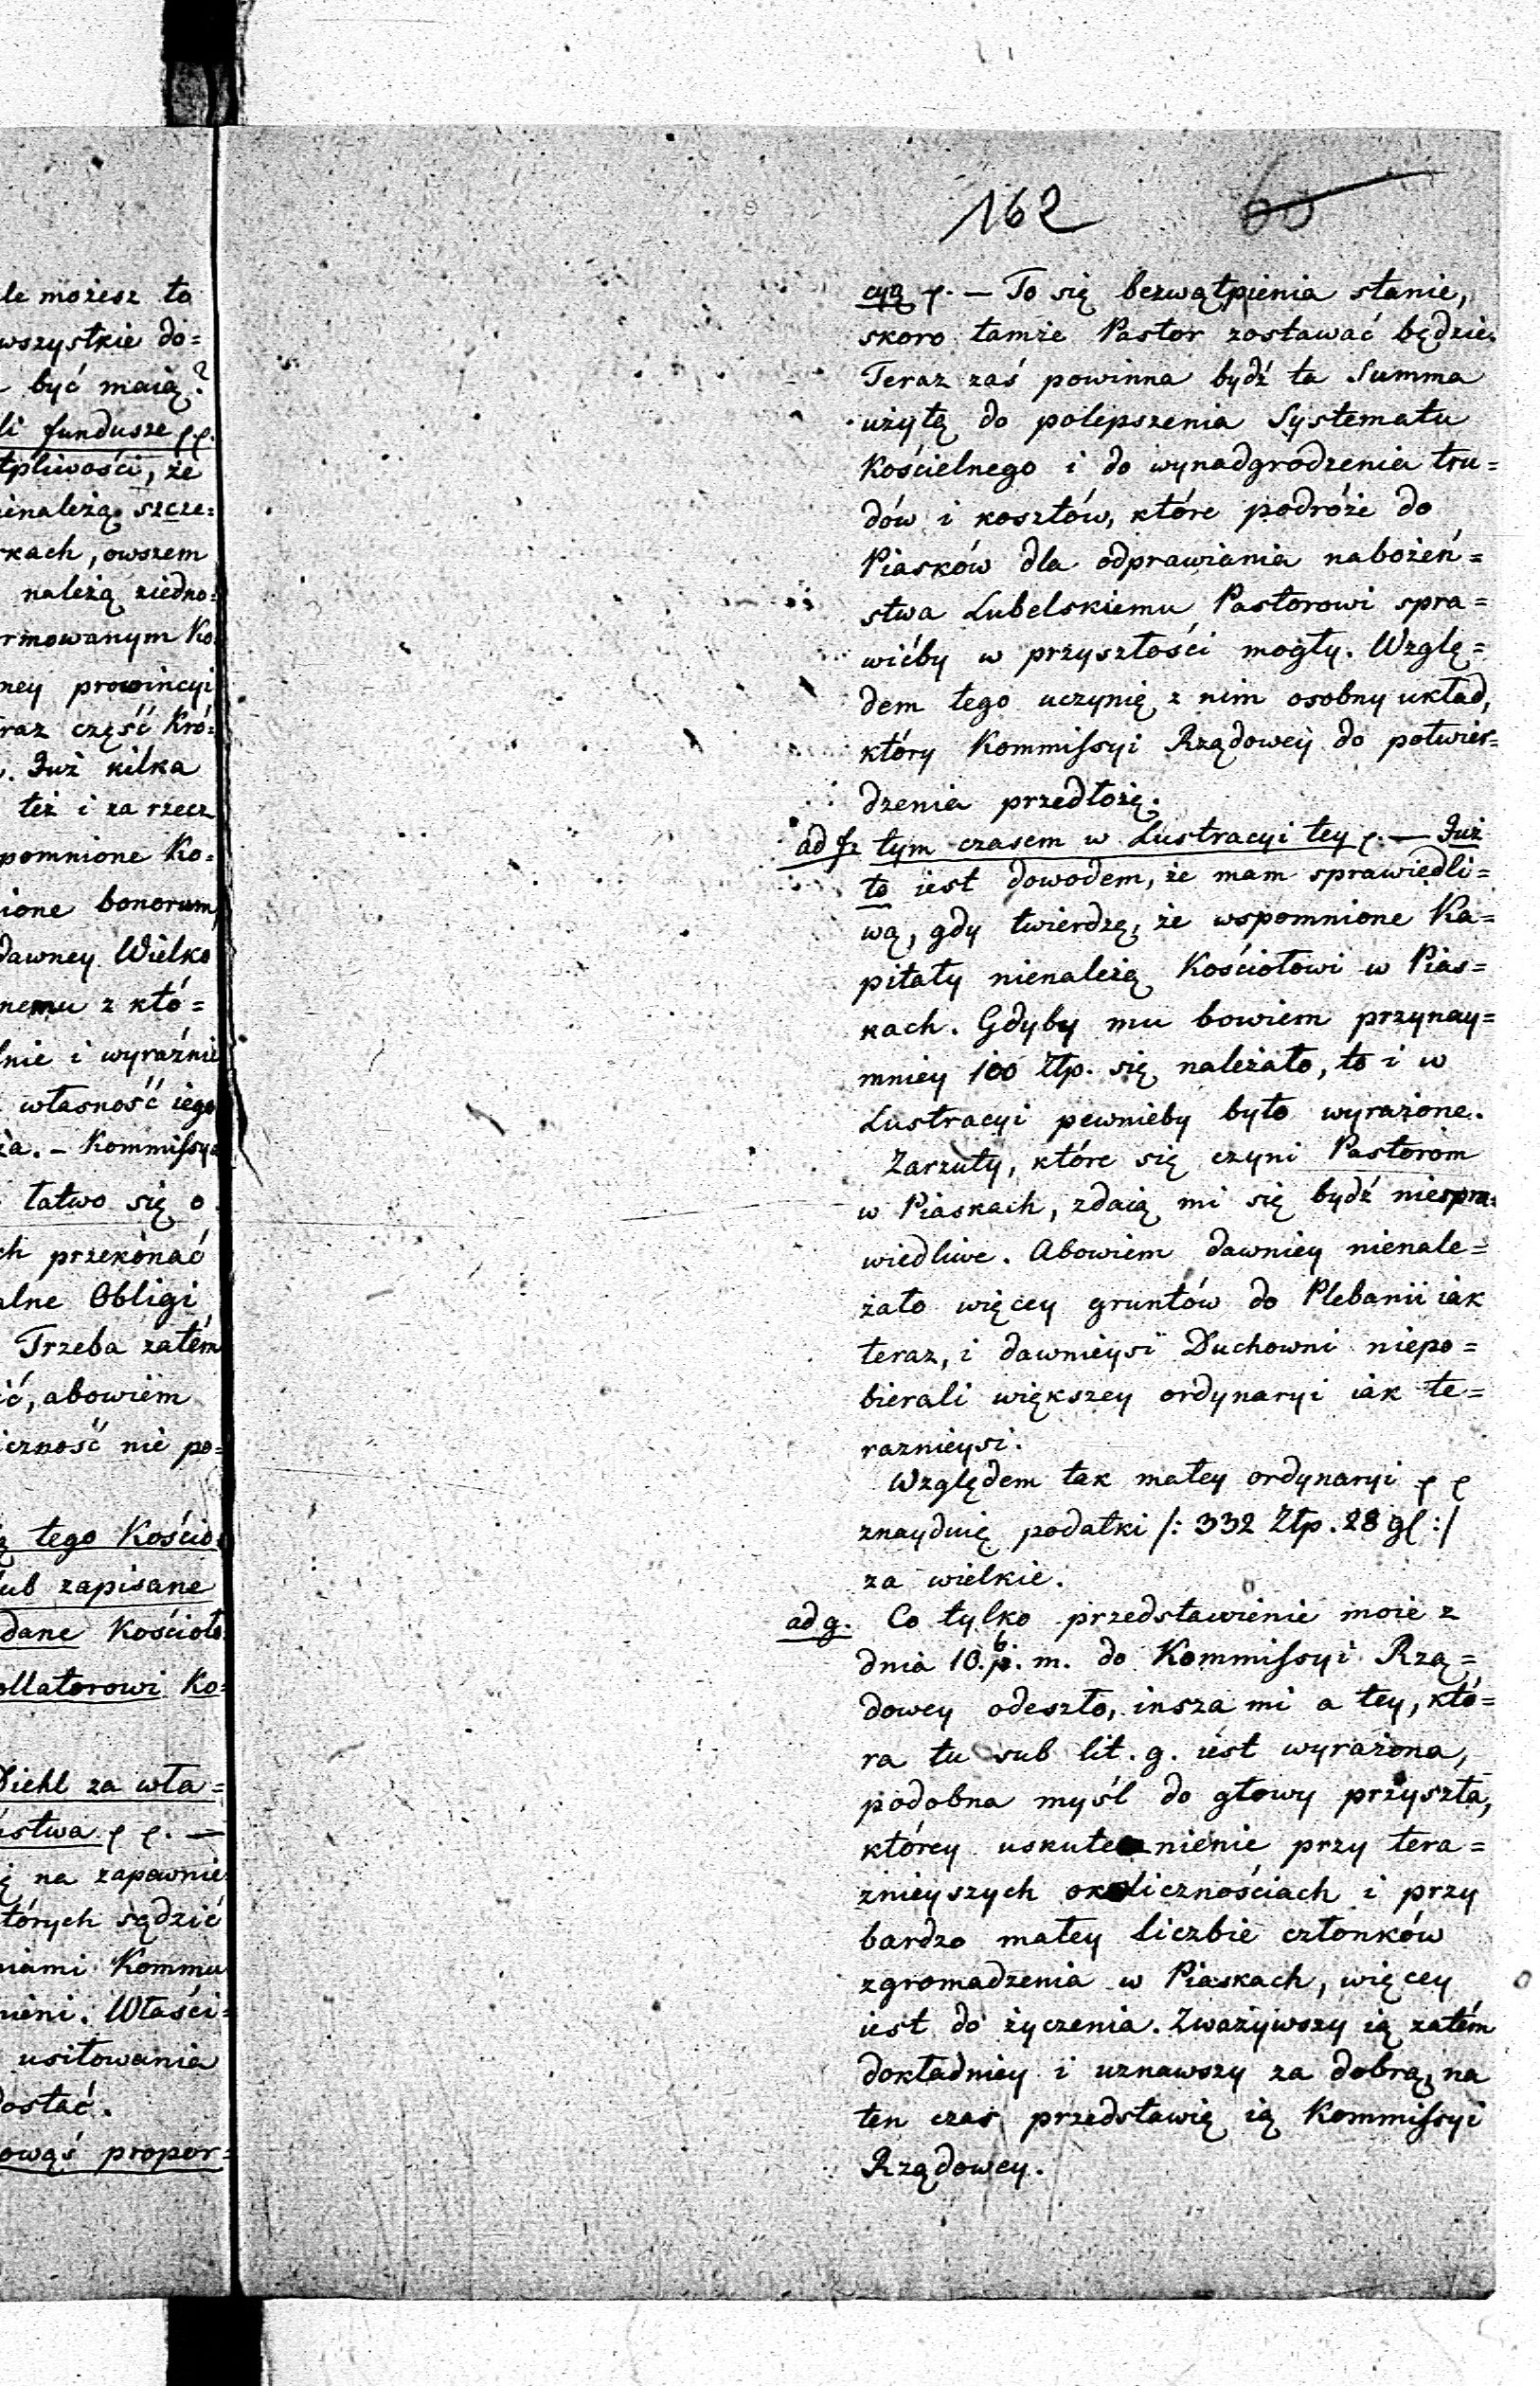 le możesz to
wszystkie do=
być maią?
li fundusze pp.
tpliwości, że
nienależą szcze=
kach, owszem
należą ziedno=
rmowanym Ko=
ney prowincyi
raz część Kró=
. Już kilka
też i za rzecz
pomnione Ko=
ione bonorum
dawney Wielko
nemu z któ=
lnie i wyraźnie
własność iego
za. – Kommissya
łatwo się o
ch przekonać
alne Obligi
Trzeba zatém
ić, abowiem
iczność nie po=
ą tego Kościo=
lub zapisane
dane Kościoło
ollatorowi Ko=
Diehl za wła=
ństwa p p. —
ę na zapewnie
których sądzić
niami Kommu
nieni. Właści=
usiłowania
dostać.
owąś propor=
162 60
cyą p. — To się bezwątpienia stanie,
skoro tamże Pastor zostawać będzie.
Teraz zaś powinna bydź ta Summa
użytą do polepszenia Systematu
Kościelnego i do wynadgrodzenia tru=
dów i kosztów, które podróże do
Piasków dla odprawiania nabożeń=
stwa Lubelskiemu Pastorowi spra=
wićby w przyszłości mogły. Wzglę=
dem tego uczynię z nim osobny układ,
który Kommissyi Rządowey do potwier=
dzenia przedłożę.
ad f. tym czasem w Lustracyi tey p. — Już
to iest dowodem, że mam sprawiedli=
wą, gdy twierdzę, że wspomnione Ka=
pitały nienależą Kościołowi w Pias=
kach. Gdyby mu bowiem przynay=
mniey 100 Złp. się należało, to i w
Lustracyi pewnieby było wyrażone.
Zarzuty, które się czyni Pastorom
w Piaskach, zdaią mi się bydź niespra=
wiedliwe. Abowiem dawniey nienale=
żało więcey gruntów do Plebanii iak
teraz, i dawnieysi Duchowni niepo=
bierali większey ordynaryi iak te=
raznieysi.
Względem tak małey ordynaryi p p
znayduię podatki /: 332 Złp. 28 gl :/
za wielkie.
ad g. Co tylko przedstawienie moie z
dnia 10. b. m. do Kommissyi Rzą=
dowey odeszło, insza mi a tey, któ=
ra tu sub lit. g. iest wyrażona,
podobna myśl do głowy przyszła,
którey uskutecznienie przy tera=
znieyszych okolicznościach i przy
bardzo małey liczbie członków
zgromadzenia w Piaskach, więcey
iest do życzenia. Zważywszy ią zatém
dokładniey i uznawszy za dobrą, na
ten czas przedstawię ią Kommissyi
Rządowey.